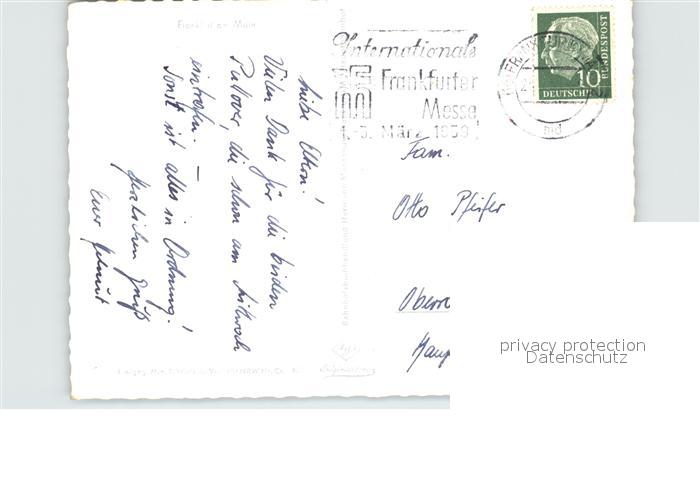 Frankfurt am Main
Liebe Eltern!
Vielen Dank für die beiden
Pullover, die schon am Mittwoch
eintrafen. —
Sonst ist alles in Ordnung!
Herzlichen Gruß
Euer Helmut
Internationale
Frankfurter
Messe
1.-5. März 1959
10
DEUTSCHE
BUNDESPOST
Fam.
Otto Pfeifer
privacy protection
Datenschutz